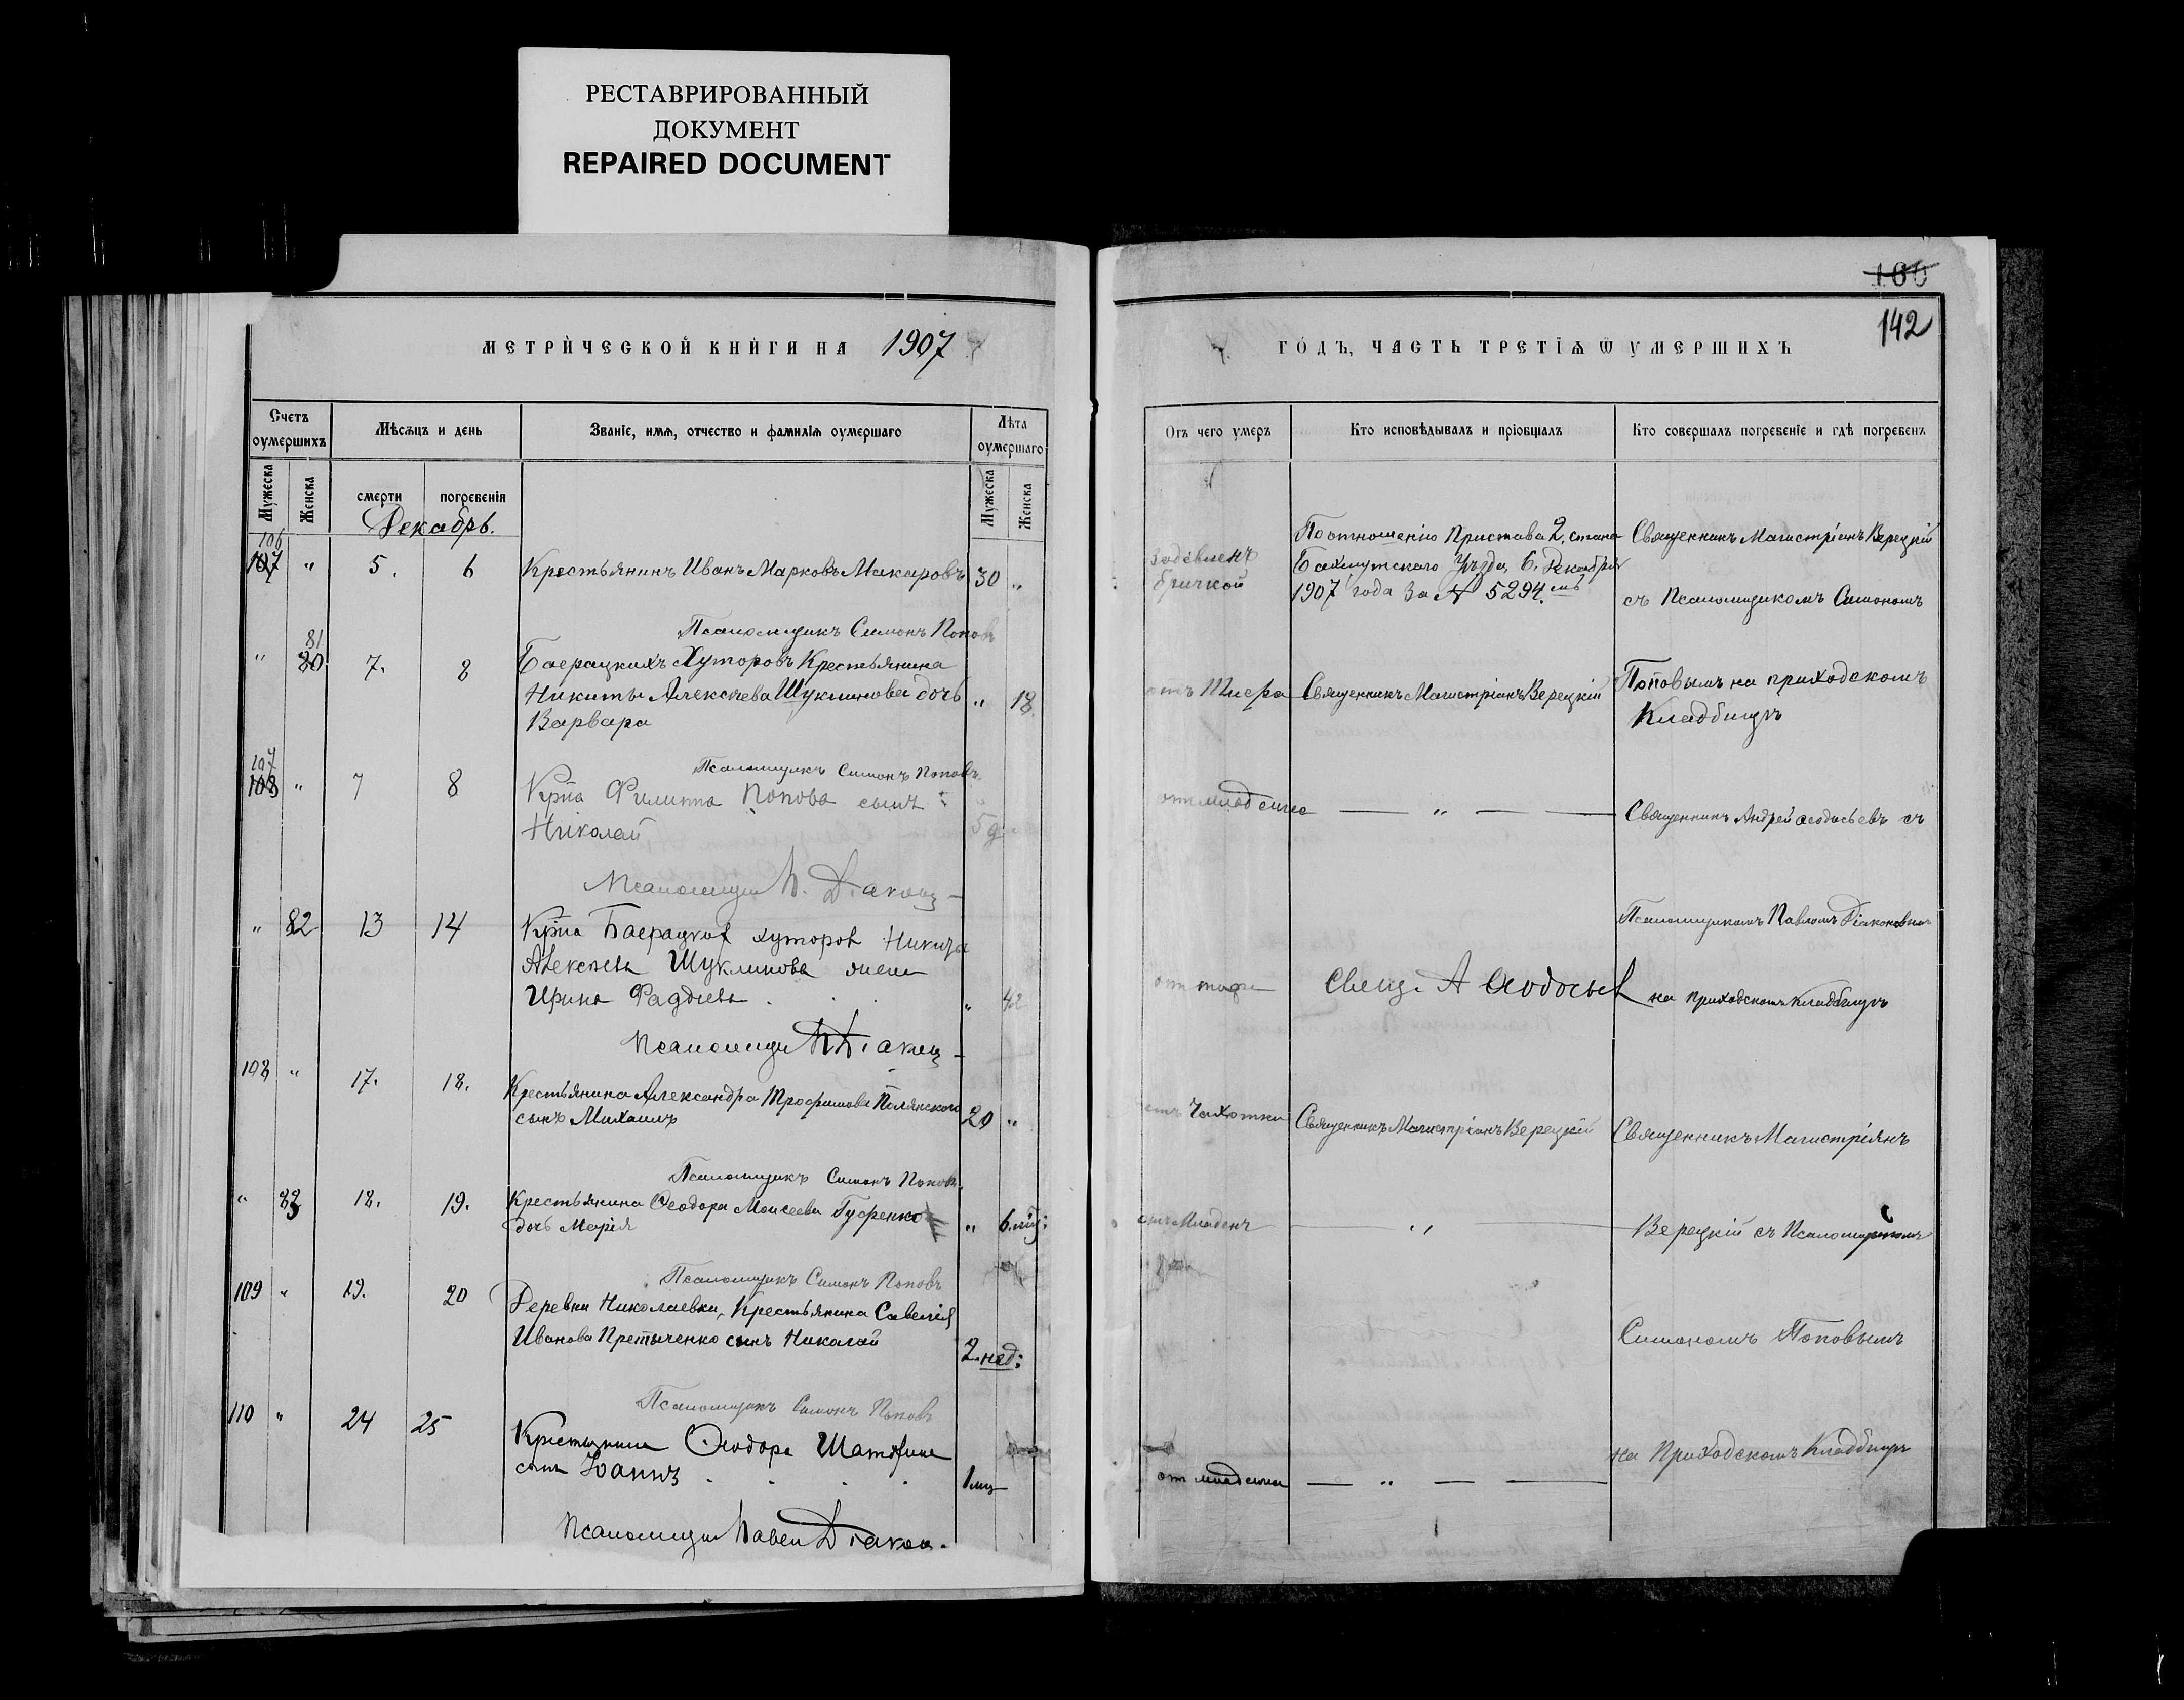 РЕСТАВРИРОВАННЫЙ
ДОКУМЕНТ
REPAIRED DOCUMENT
МЕТРИЧЕСКОЙ КНИГИ НА 1907
Счетъ оумершихъ
Мѣсяцъ и день
Званіе, имя, отчество и фамилія оумершаго
Лѣта оумершаго
Мужеска
Женска
смерти
погребенія
Мужеска
Женска
Декабрь.
106
107 " 5. 6 Крестьянинъ Иванъ Марковъ Макаровъ 30 "
Псаломщикъ Симонъ Поповъ
81
" 80 7. 8 Баерацкихъ Хуторовъ Крестьянина
Никиты Алексѣева Шуклинова дочь " 18.
Варвара
Псаломщикъ Симонъ Поповъ
107
108 " 7 8 Крнa Филиппа Попова сынъ
Николай 5 д
Псаломщи П. Діакон
" 82 13 14 Крнa Баерацких хуторов Никиты
Алексѣева Шуклинова жена
Ирина Фаддѣева " 42
Псаломщи П Діакон
108 " 17. 18. Крестьянина Александра Трофимова Полянскаго
сынъ Михаилъ 20 "
Псаломщикъ Симонъ Поповъ
" 83 18. 19. Крестьянина Ѳеодора Моисеева Гусренко
дочь Марія " 6 мѣ:
Псаломщикъ Симонъ Поповъ
109 " 19. 20 Деревни Николаевки, Крестьянина Савелія
Иванова Претыченко сынъ Николай 2 нед:
Псаломщикъ Симонъ Поповъ
110 " 24 25 Крестьянина Ѳеодора Шатохина
сынъ Іоаннъ 1 мц
Псаломщи Павел Діакон.
100
142
ГОДЪ, ЧАСТЬ ТРЕТІЯ Ѿ УМЕРШИХЪ
Отъ чего умеръ
Кто исповѣдывалъ и пріобщалъ
Кто совершалъ погребеніе и гдѣ погребенъ
задавленъ
бричкой
По отношенію Пристава 2, стана
Бахмутскаго Уѣзда, 6. Декабря
1907 года За № 5294.мъ
Священникъ Магистріанъ Верецкій
съ Псаломщикомъ Симономъ
отъ Тифа Священникъ Магистріанъ Верецкій
Поповымъ на приходскомъ
Кладбищѣ
от младенч — " — Священникъ Андрей Ѳеодосьевъ съ
Псаломщикомъ Павломъ Діаконовым
от тифа Свящ. А Ѳеодосьев на приходскомъ кладбищѣ
отъ Чахотки Священникъ Магистріанъ Верецкій Священникъ Магистріянъ
отъ Младенч — " — Верецкій съ Псаломщикомъ
Симономъ Поповымъ
на Приходскомъ Кладбищѣ
от младенч — " —